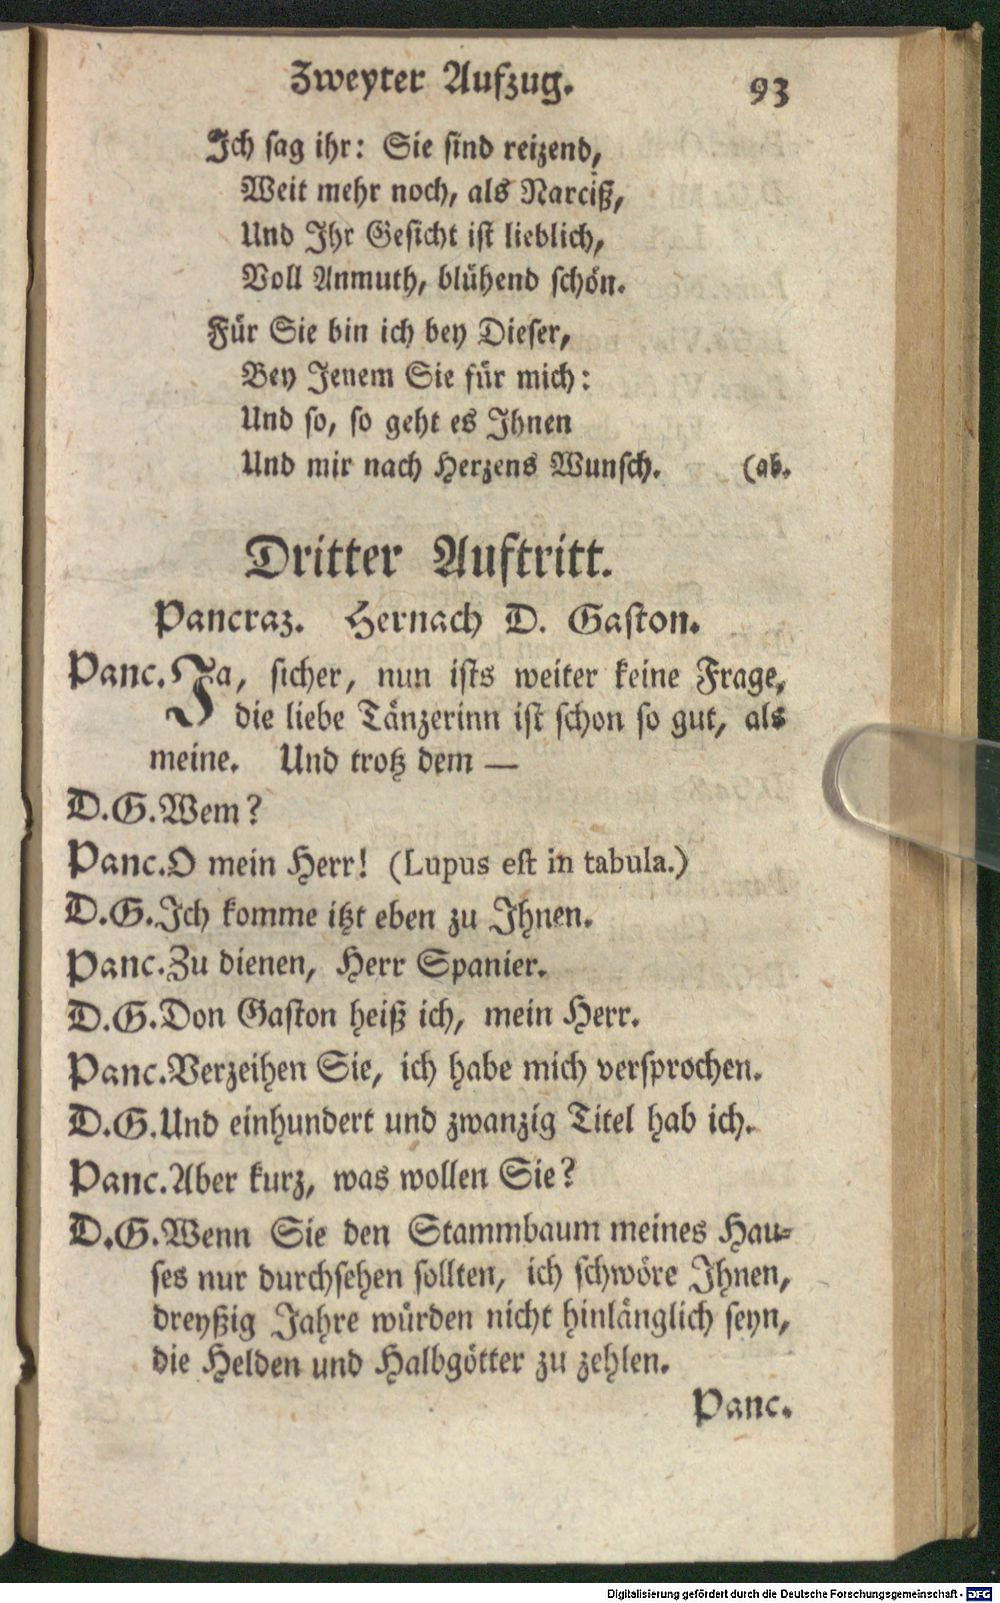 Zweyter Aufzug. 93
Ich sag ihr: Sie sind reizend,
Weit mehr noch, als Narciß,
Und Ihr Gesicht ist lieblich,
Voll Anmuth, blühend schön.
Für Sie bin ich bey Dieser,
Bey Jenem Sie für mich:
Und so, so geht es Ihnen
Und mir nach Herzens Wunsch. (ab.
Dritter Auftritt.
Pancraz. Hernach D. Gaston.
Panc. Ja, sicher, nun ists weiter keine Frage,
die liebe Tänzerinn ist schon so gut, als
meine. Und trotz dem —
D. G. Wem?
Panc. O mein Herr! (Lupus est in tabula.)
D. G. Ich komme itzt eben zu Ihnen.
Panc. Zu dienen, Herr Spanier.
D. G. Don Gaston heiß ich, mein Herr.
Panc. Verzeihen Sie, ich habe mich versprochen.
D. G. Und einhundert und zwanzig Titel hab ich.
Panc. Aber kurz, was wollen Sie?
D. G. Wenn Sie den Stammbaum meines Hau-
ses nur durchsehen sollten, ich schwöre Ihnen,
dreyßig Jahre würden nicht hinlänglich seyn,
die Helden und Halbgötter zu zehlen.
Panc.
Digitalisierung gefördert durch die Deutsche Forschungsgemeinschaft - DFG